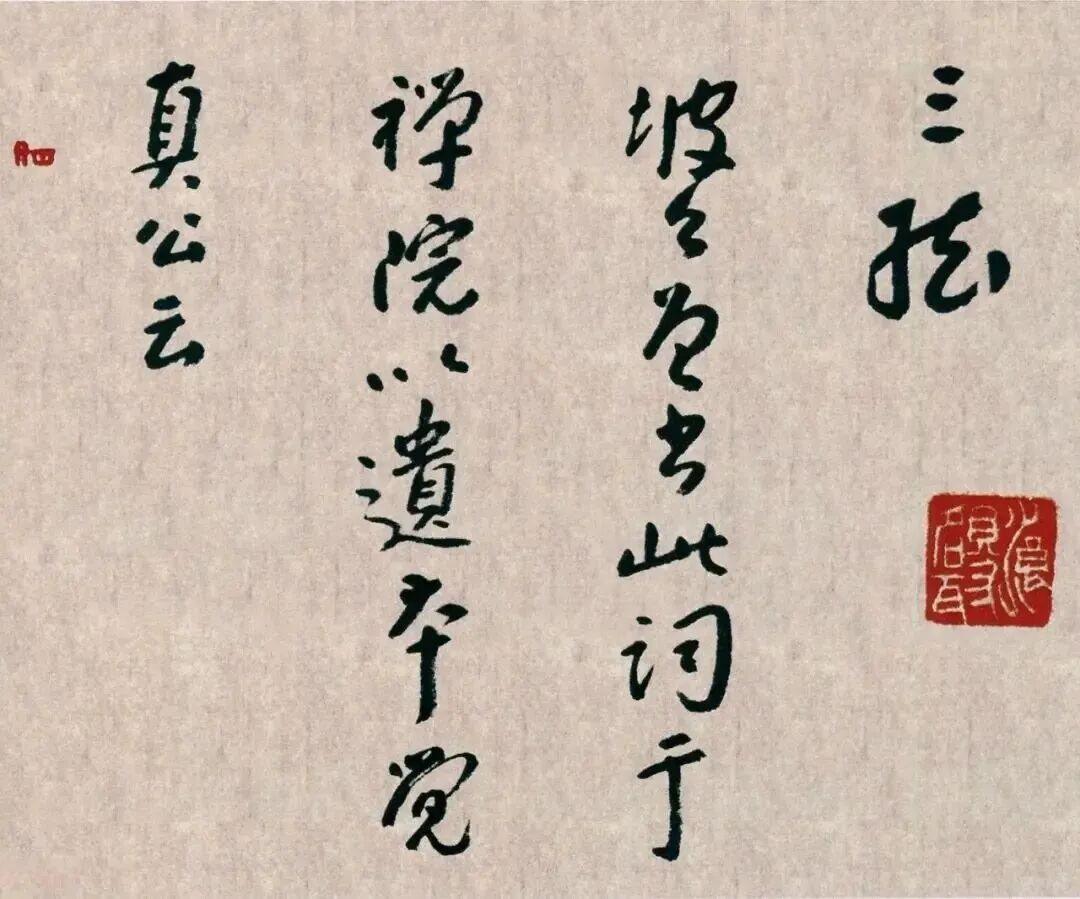 三
坡公曾书此词于
禅院以遗本觉
真公云